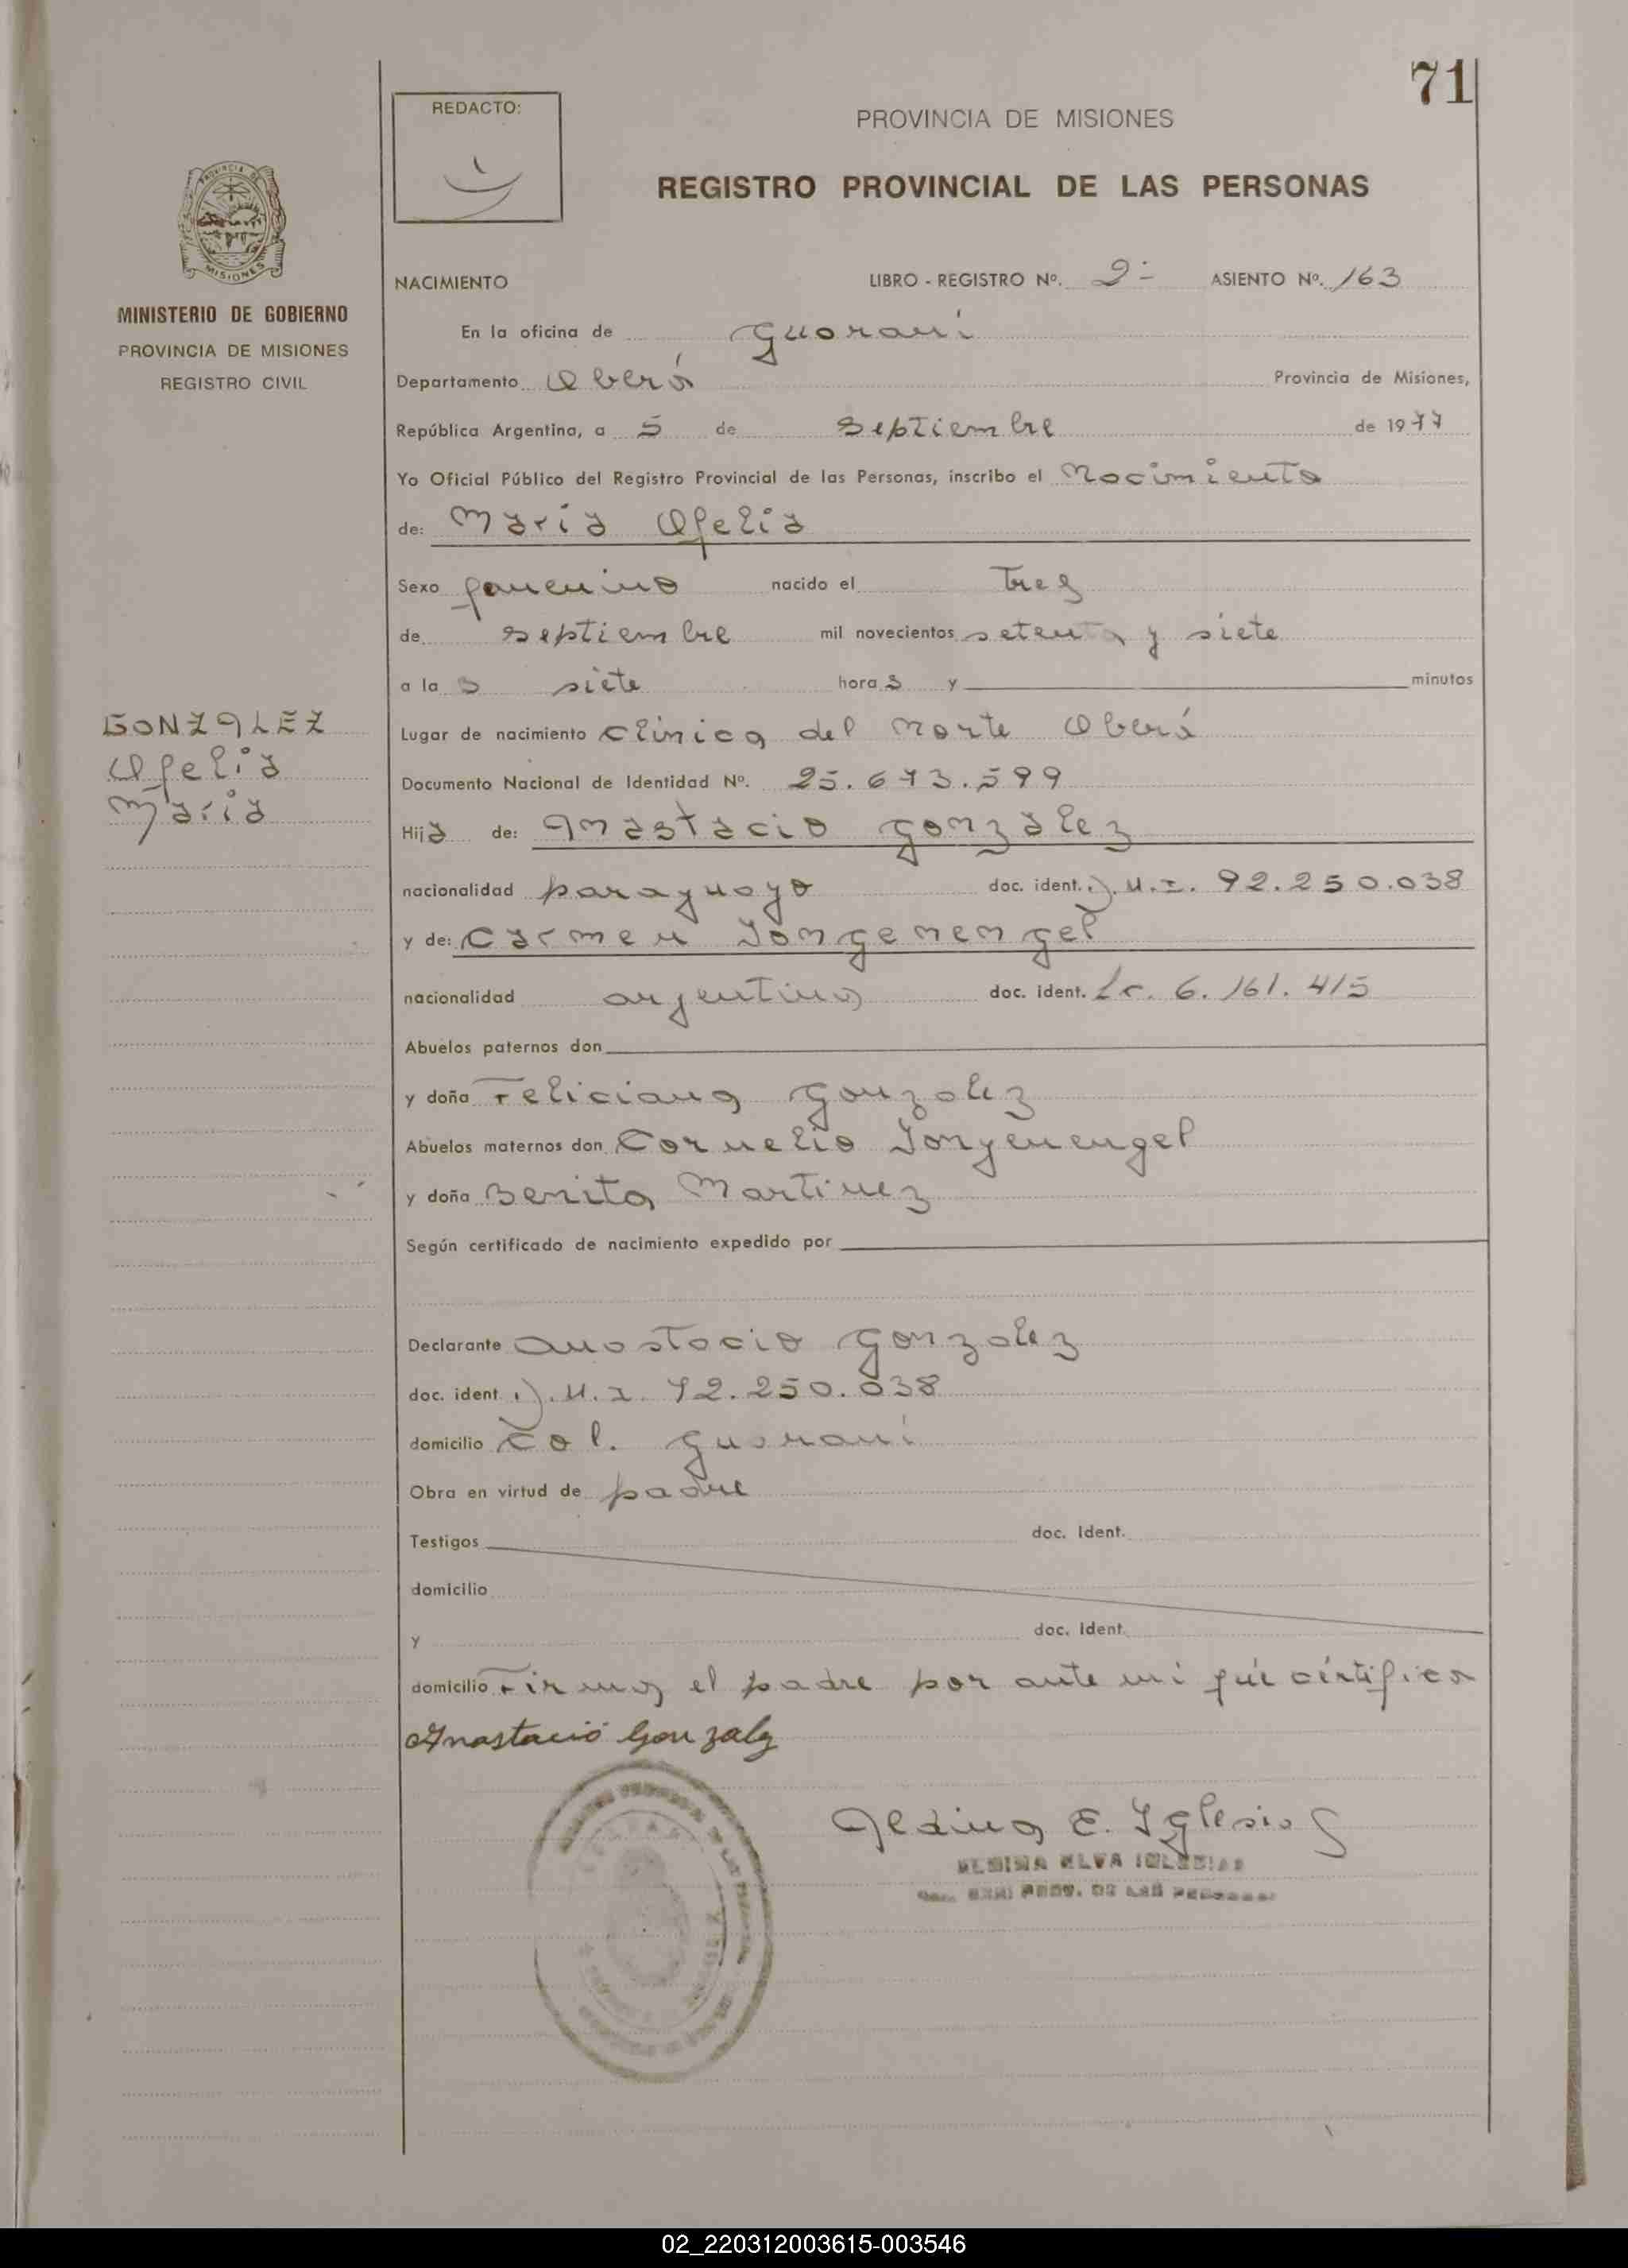 71
REDACTO:
PROVINCIA DE MISIONES
REGISTRO PROVINCIAL DE LAS PERSONAS
PROVINCIA DE
MISIONES
MINISTERIO DE GOBIERNO
PROVINCIA DE MISIONES
REGISTRO CIVIL
NACIMIENTO LIBRO - REGISTRO Nº. 2- ASIENTO Nº. 163
En la oficina de Guarani
Departamento Oberá Provincia de Misiones,
República Argentina, a 5 de septiembre de 1977
Yo Oficial Público del Registro Provincial de las Personas, inscribo el Nacimiento
de: María Ofelia
Sexo femenino nacido el tres
de septiembre mil novecientos setenta y siete
a la s siete hora s y minutos
GONZALEZ
Ofelia
María
Lugar de nacimiento Clinica del Norte Oberá
Documento Nacional de Identidad Nº. 25.673.599
Hija de: Anastacio Gonzalez
nacionalidad paraguayo doc. ident. D.N.I. 92.250.038
y de: Carmen Jongenengel
nacionalidad argentina doc. ident. Lc. 6.161.415
Abuelos paternos don
y doña Feliciana Gonzalez
Abuelos maternos don Cornelio Jongenengel
y doña Benita Martinez
Según certificado de nacimiento expedido por
Declarante Anastacio Gonzalez
doc. ident D.N.I. 92.250.038
domicilio Col. Guarani
Obra en virtud de padre
Testigos doc. Ident.
domicilio
y doc. Ident.
domicilio Firma el padre por ante mi que certifico
Anastacio Gonzalez
E. Iglesias
ELVA IGLESIAS
PROV. DE LAS PERSONAS
02_220312003615-003546